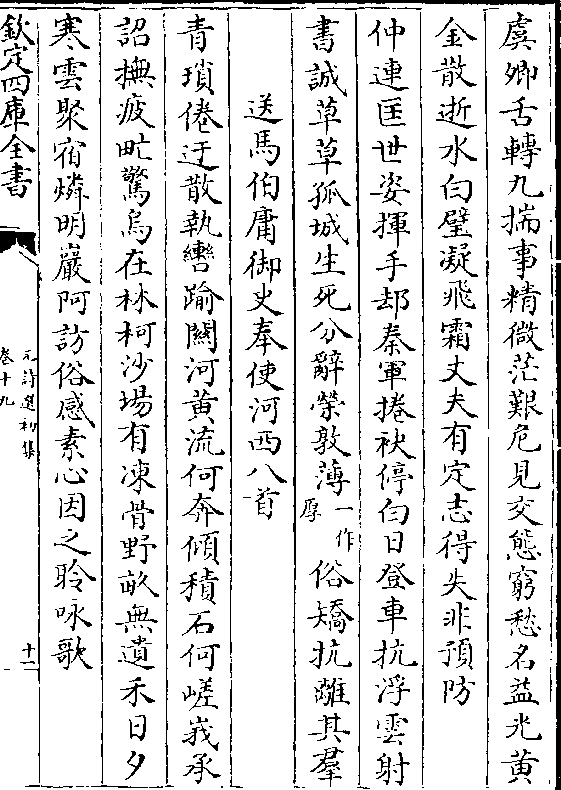 虞卿舌轉九揣事精微茫艱危見交態窮愁名益光黄
金散逝水白璧凝飛霜丈夫有定志得失非預防
仲連匡世姿揮手却秦軍捲袂停白日登車抗浮雲射
書誠草草孤城生死分辭榮敦薄一作厚俗矯抗離其羣
送馬伯庸御史奉使河西八首
青瑣倦迂散執轡踰關河黄流何奔傾積石何嵯峩承
詔撫疲甿驚烏在林柯沙場有凍骨野畝無遺禾日夕
寒雲聚宿燐明巖阿訪俗感素心因之聆咏歌
欽定四庫全書
元詩選初集
卷十九
十二